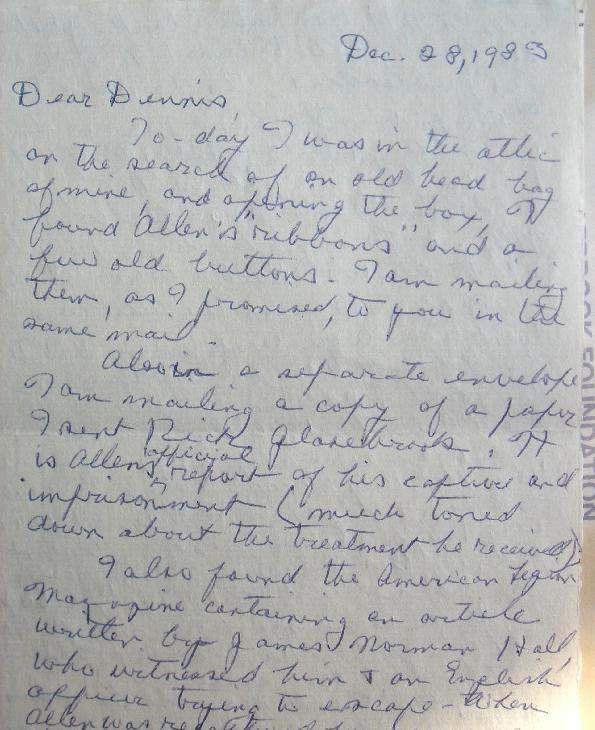 Dec. 28, 1983
Dear Dennis,
To-day I was in the attic
on the search of an old bead bag
of mine, and opening the box, I
found Allen's "ribbons" and a
few old buttons. I am mailing
them, as I promised, to you in the
same mail.
Also in a separate envelope
I am mailing a copy of a paper
I sent Rick Glazebrook. It
is Allen's official report of his capture and
imprisonment (much toned
down about the treatment he received)
I also found the American Legion
Magazine containing an article
written by James Norman Hall,
who witnessed him & an English
officer trying to escape - When
Allen was
FOUNDATION